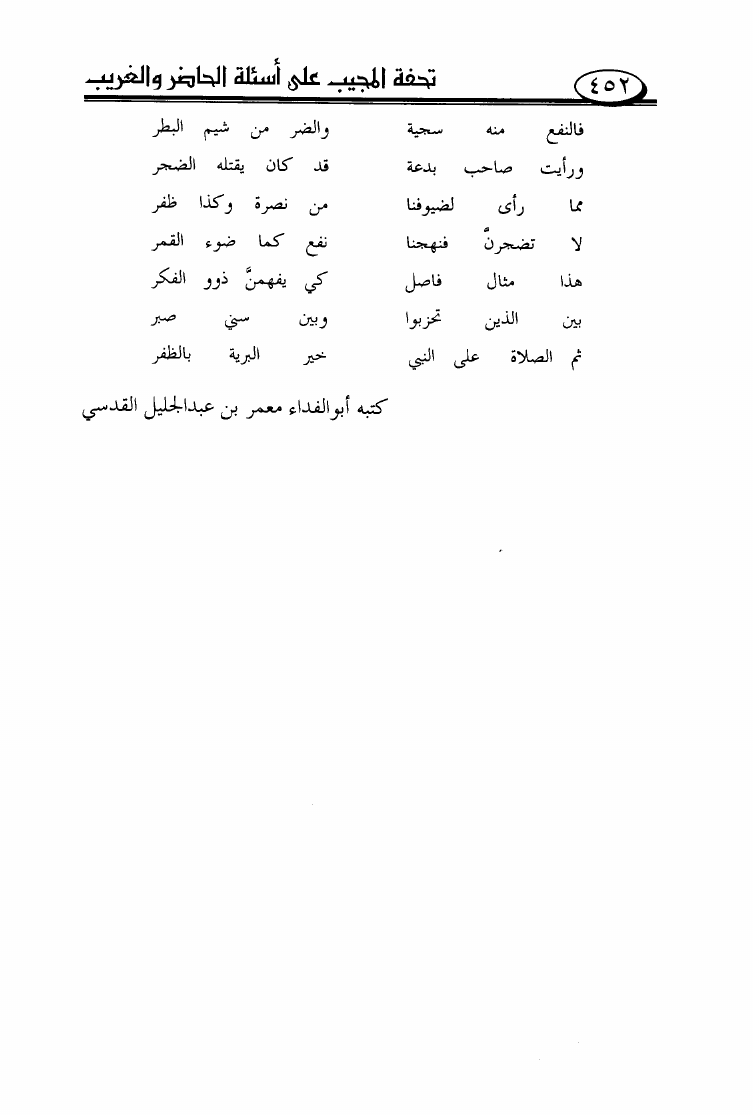 ٤٥٢ تحفة المجيب على أسئلة الحاضر والغريب
فالنفع منه سجية والضر من شيم البطر
ورأيت صاحب بدعة قد كان يقتله الضجر
مما رأى لضيوفنا من نصرة وكذا ظفر
لا تضجرنَّ فنهجنا نفع كما ضوء القمر
هذا مثال فاصل كي يفهمنَّ ذوو الفكر
بين الذين تحزبوا وبين سني صبر
ثم الصلاة على النبي خير البرية بالظفر
كتبه أبوالفداء معمر بن عبدالجليل القدسي